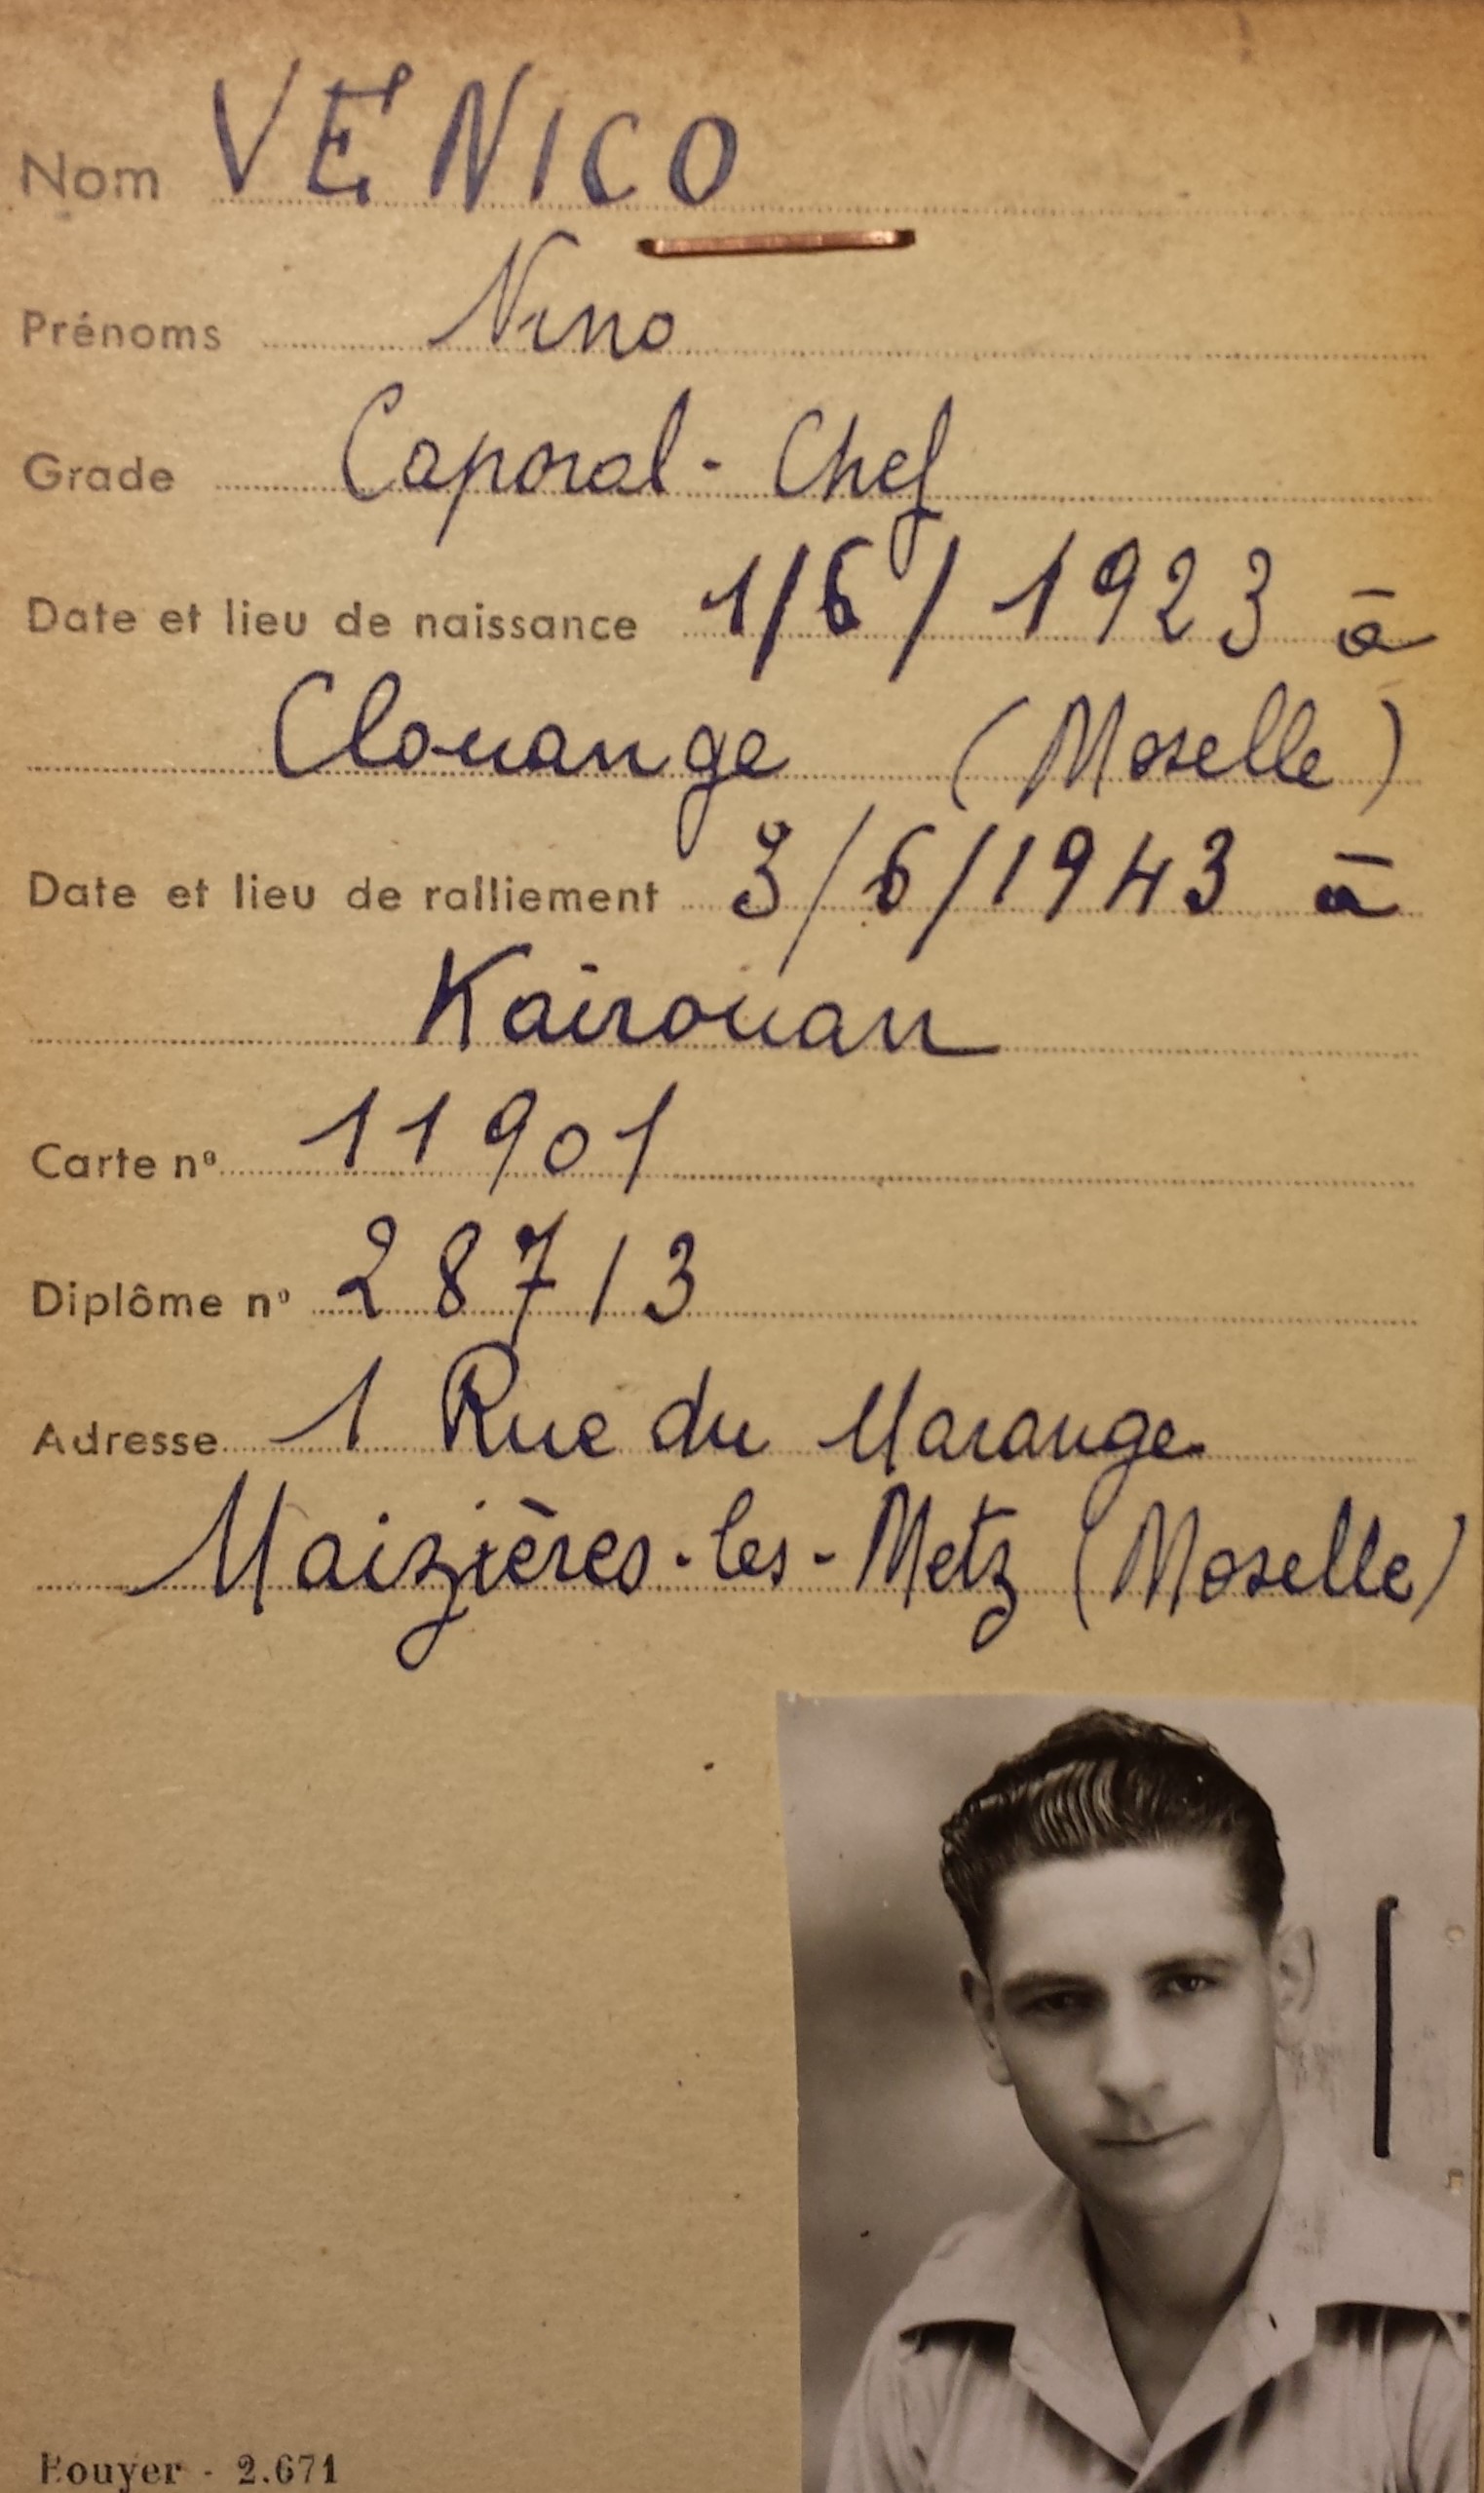 Nom VÉNICO
Prénoms Nino
Grade Caporal-Chef
Date et lieu de naissance 1/6/1923 à
Clouange (Moselle)
Date et lieu de ralliement 3/6/1943 à
Kairouan
Carte nº 11901
Diplôme nº 28713
Adresse 1 Rue du Marange
Maizières-les-Metz (Moselle)
Rouyer - 2.671